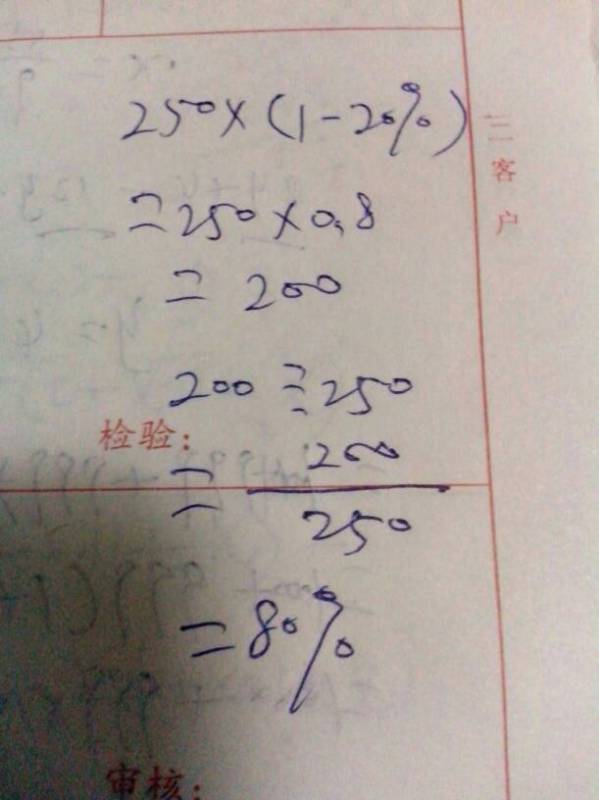 250×(1-20%)
=250×0.8
=200
200÷250
检验:
=200/250
=80%
审核:
三客户